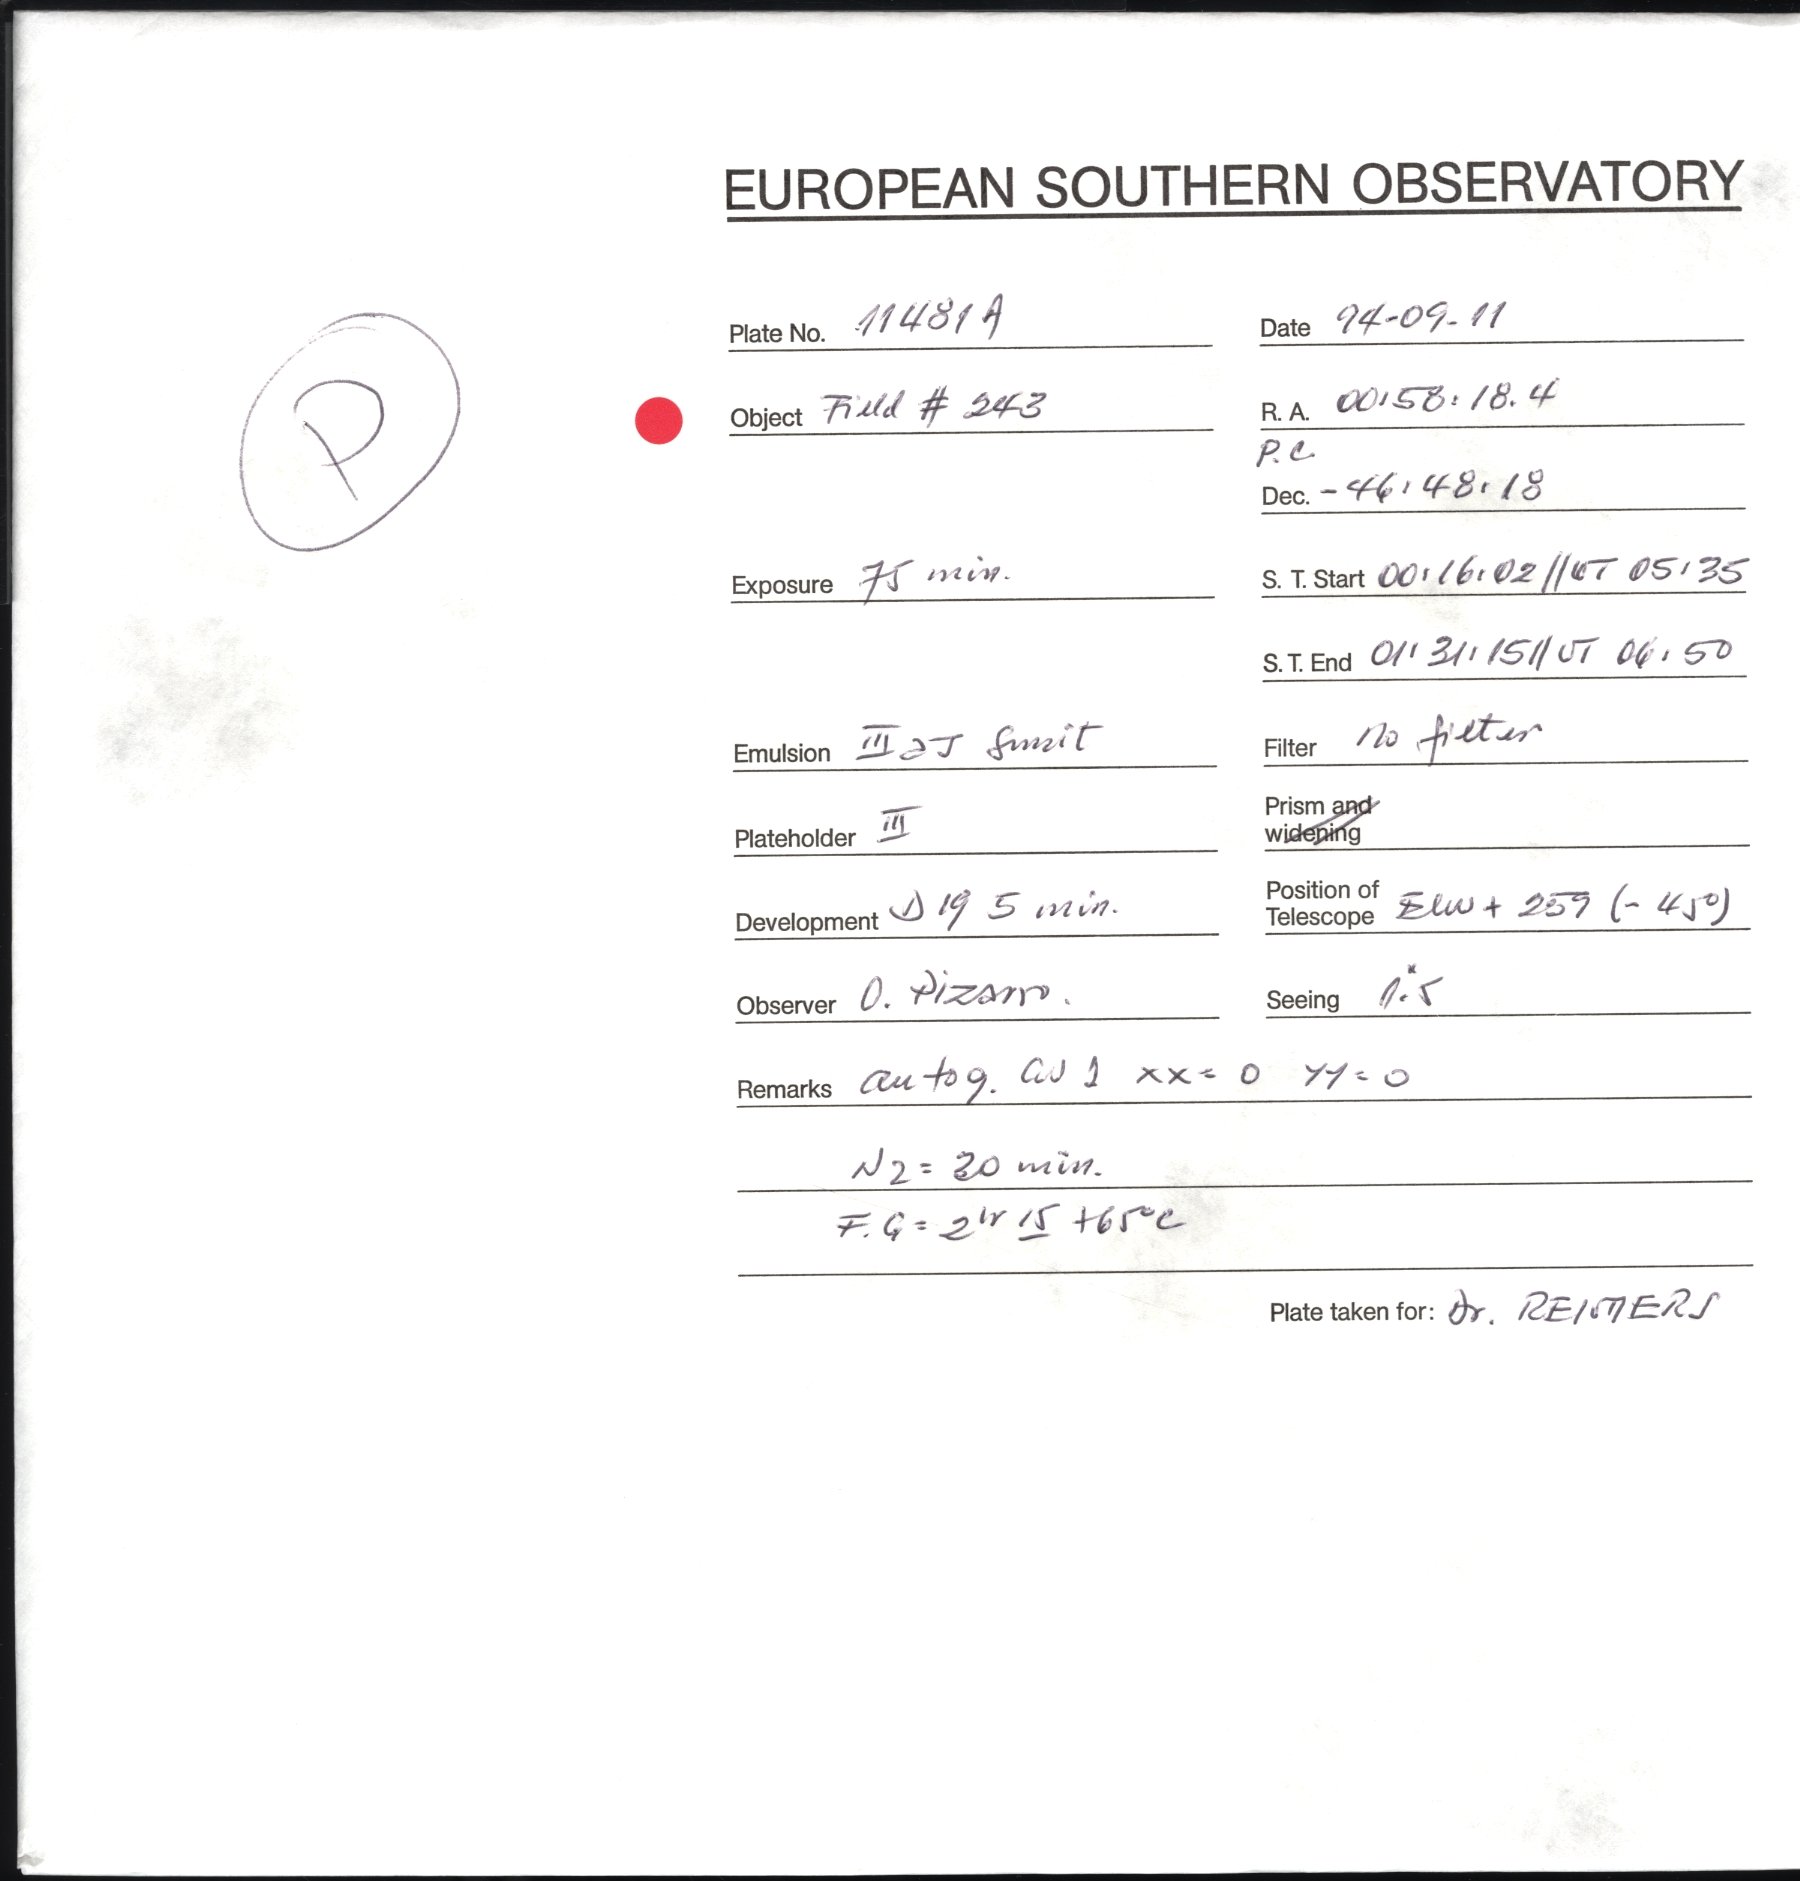 EUROPEAN SOUTHERN OBSERVATORY
P
Plate No. 11481A
Date 94-09-11
Object Field # 243
R. A. 00:58:18.4
P.C.
Dec. -46:48:18
Exposure 75 min.
S. T. Start 00:16:02//UT 05:35
S. T. End 01:31:15//UT 06:50
Emulsion III aJ
Filter no filter
Plateholder III
Prism and widening
Development D19 5 min.
Position of Telescope + 259 (-450)
Observer O. Pizarro.
Seeing 1".5
Remarks autog. xx= 0 yy= 0
N2= 30 min.
F.G= 2hr 15 +65°C
Plate taken for: Dr. REIMERS